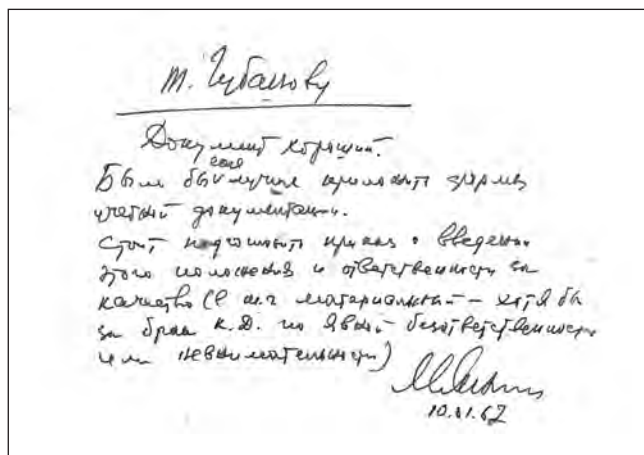 т. Губанову
Документ хороший.
Было бы ещё лучше приложить формы
учетной документации.
Стоит подготовить приказ о введении
этого положения и ответственности за
качество (в т.ч. материальной – хотя бы
за брак К.Д. по явной безответственности
или невнимательности)
10.01.62